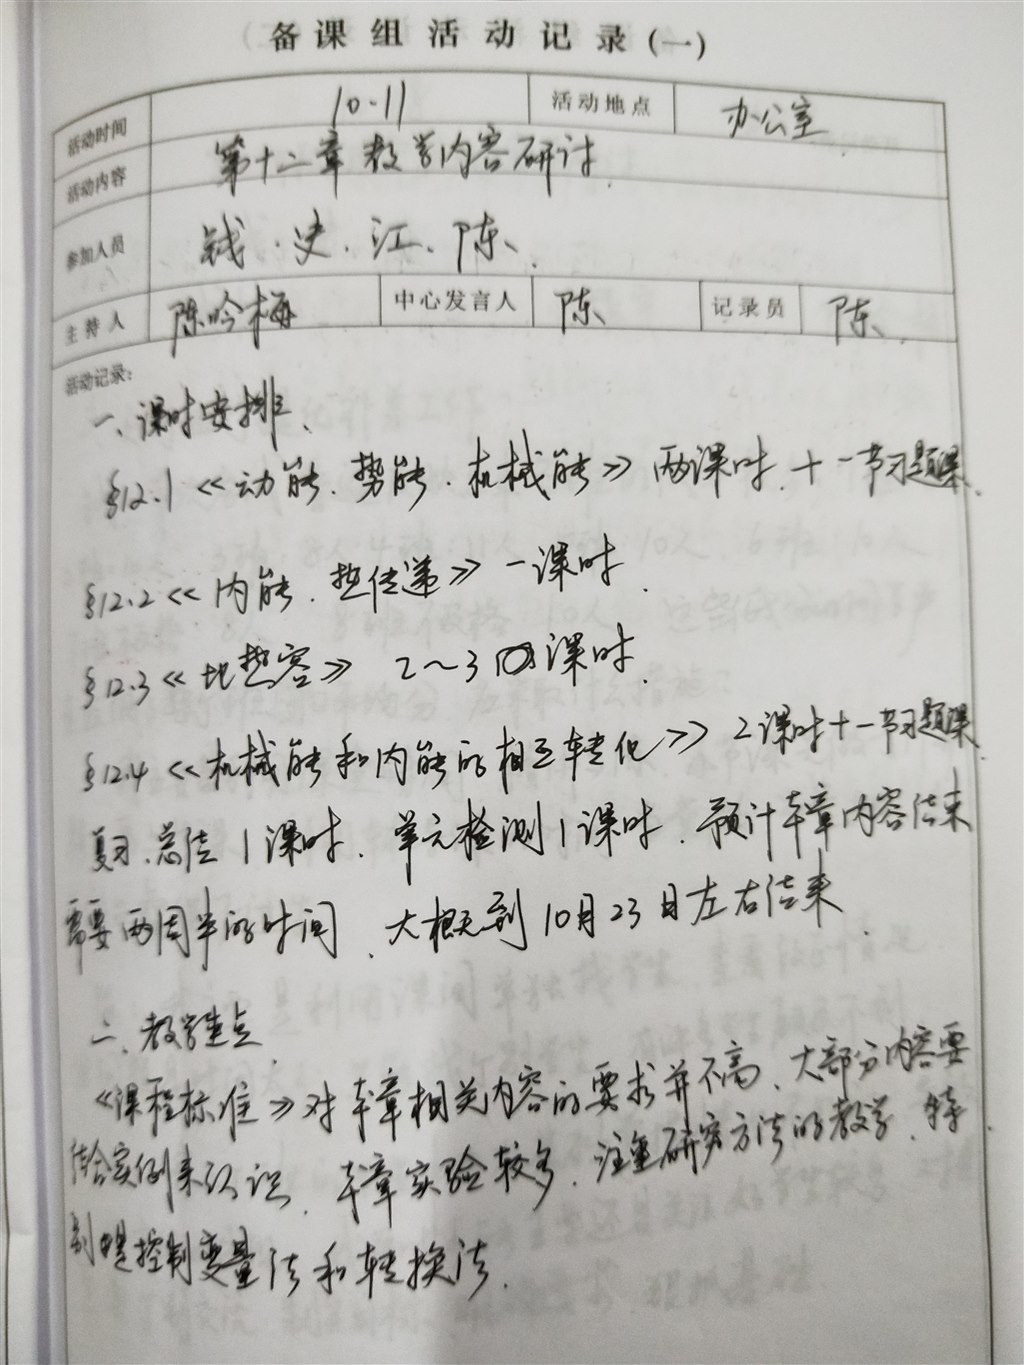 备课组活动记录(一)
活动时间 10.11 活动地点 办公室
活动内容 第十二章教学内容研讨.
参加人员 钱、史、江、陈、
主持人 陈吟梅 中心发言人 陈 记录员 陈
活动记录:
一、课时安排、
§12.1《动能、势能、机械能》两课时,十一节习题课.
§12.2《内能、热传递》一课时.
§12.3《比热容》 2~3 课时.
§12.4《机械能和内能的相互转化》2课时十一节习题课
复习、总结1课时、单元检测1课时、预计本章内容结束
需要两周半的时间、大概到10月23日左右结束.
二、教学重点
《课程标准》对本章相关内容的要求并不高、大部分内容要
结合实例来认识、本章实验较多、注重研究方法的教学、特
别是控制变量法和转换法.